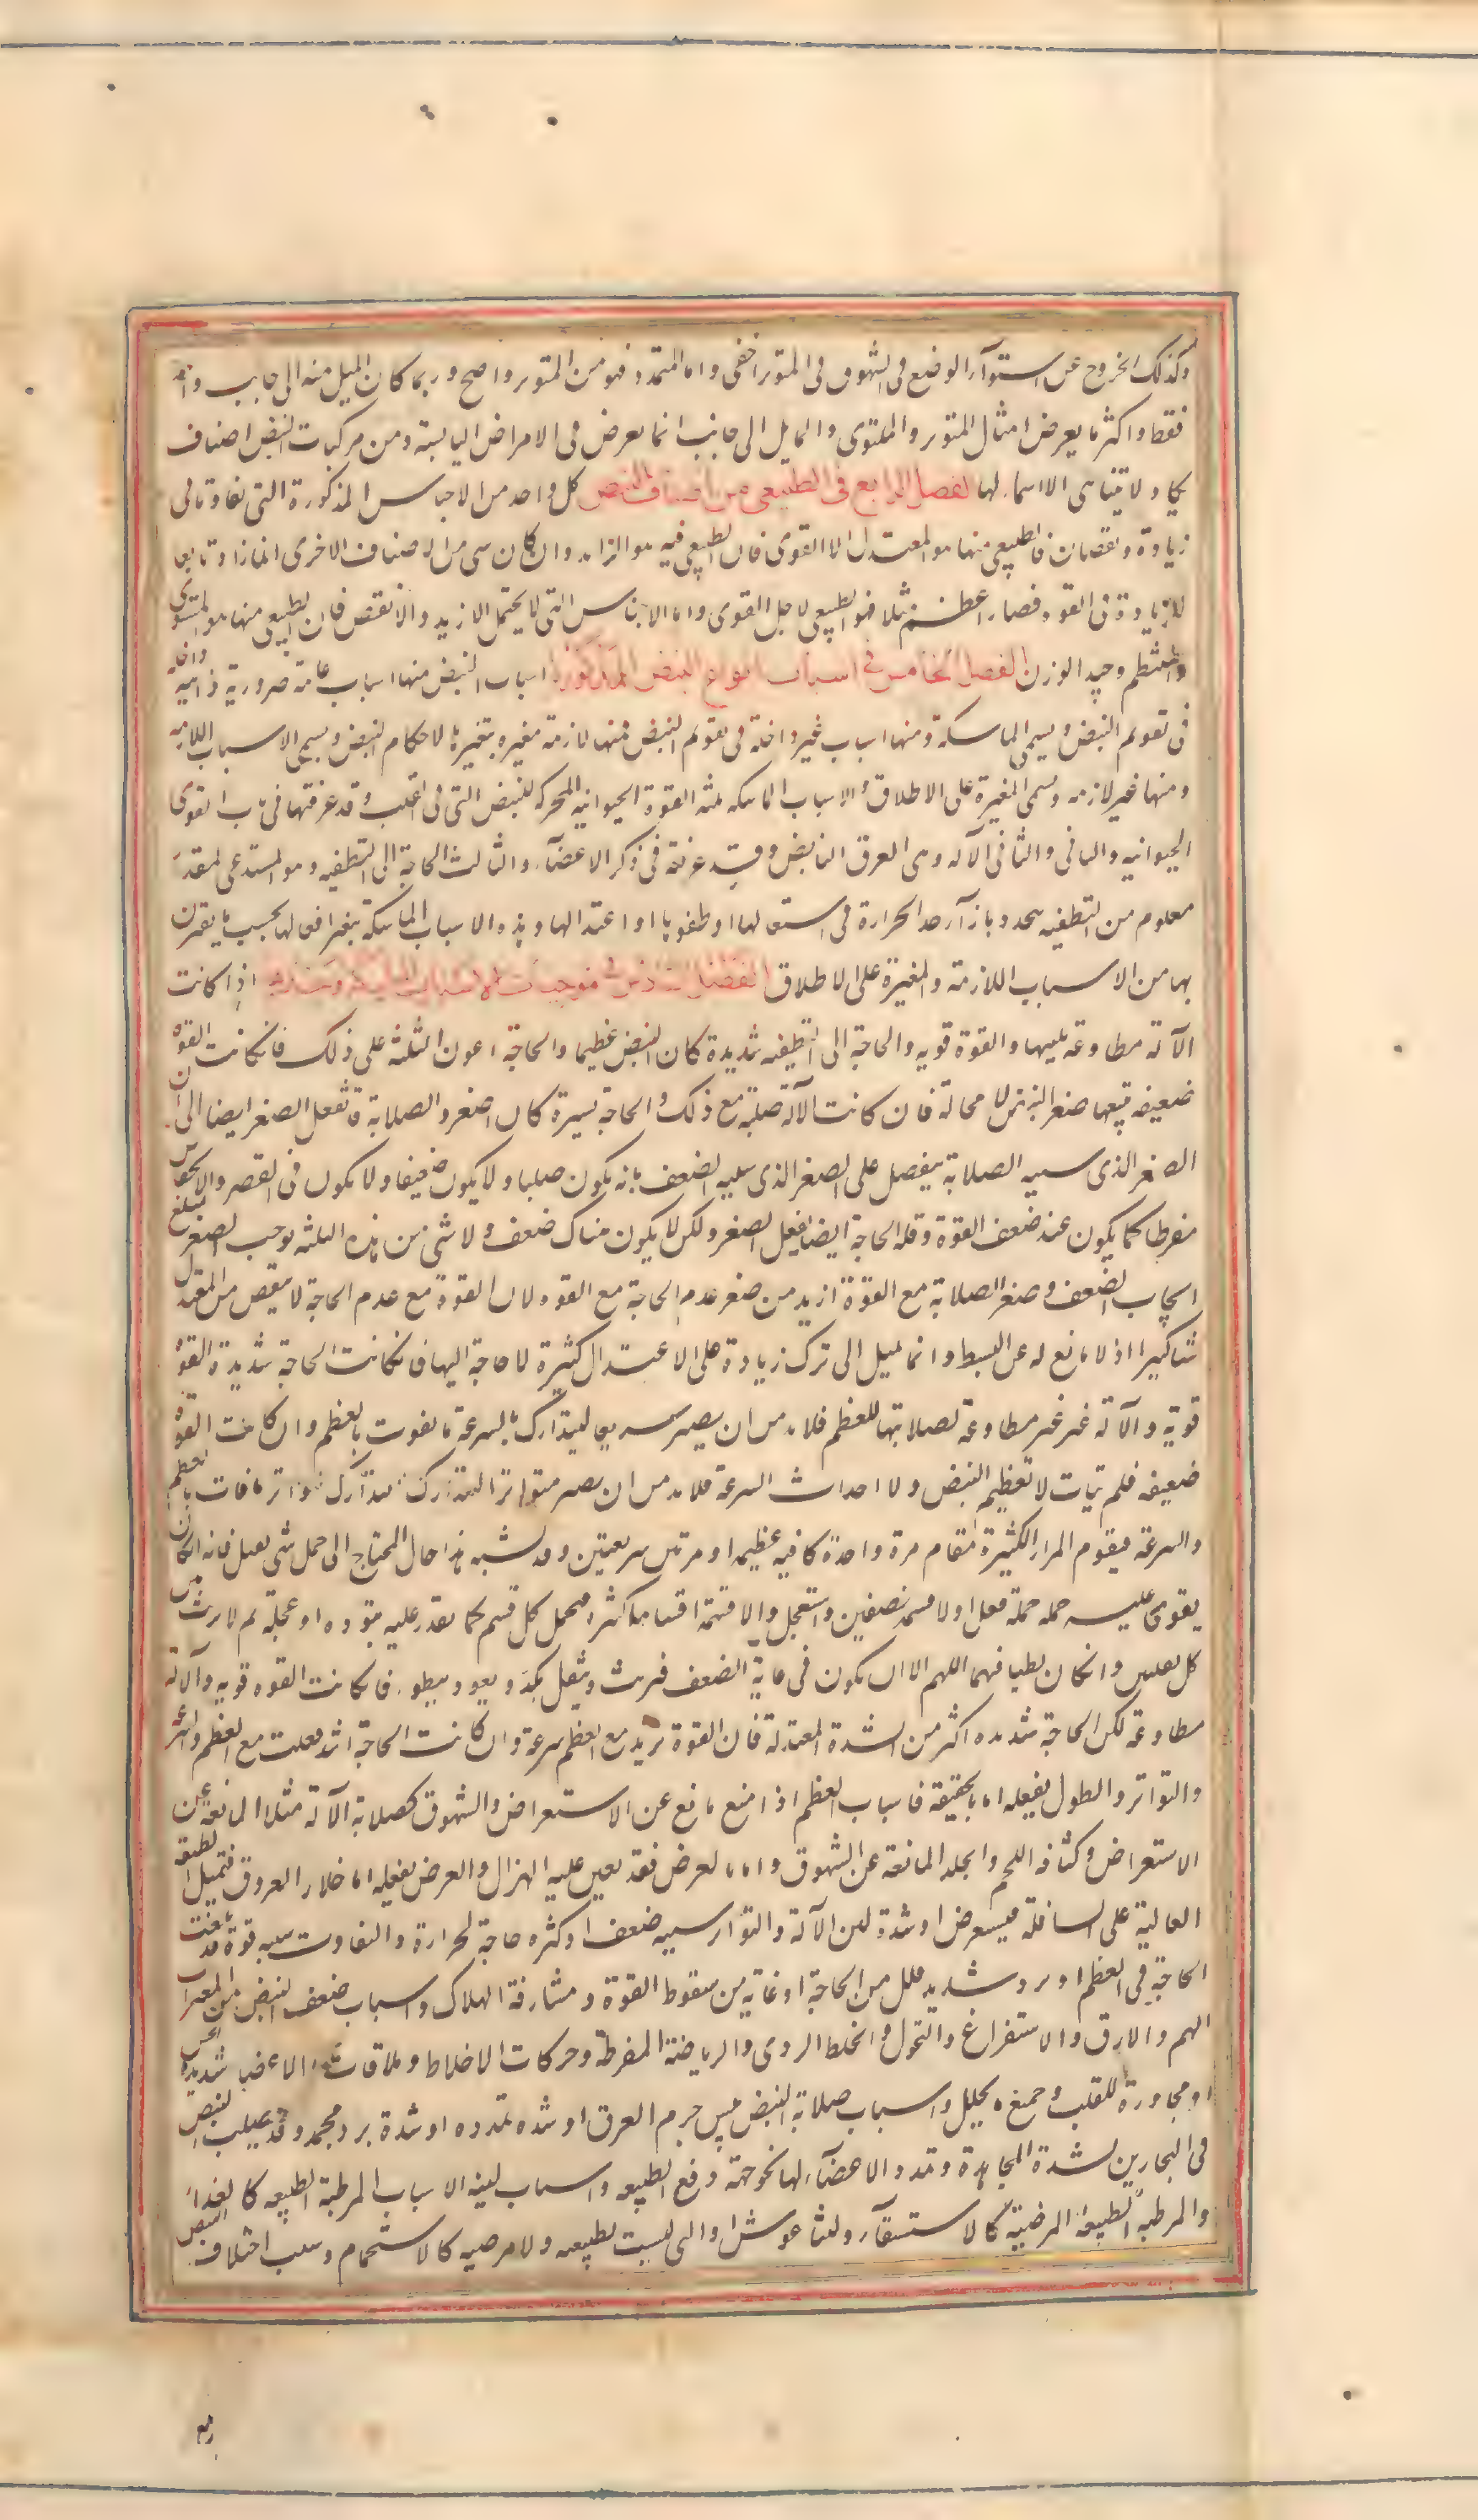 وكذلك الخروج عن استوآء الوضع فى الشهوق فى المتوتر اخفى واما التمدد فهو من المتوتر واضح وربما كان الميل منه الى جانب واحد
فقط واكثر ما يعرض امثال المتوتر والملتوى والمايل الى جانب انما يعرض فى الامراض اليابسة ومن مركبات النبض اصناف
يكاد لا يتناهى ولا اسماء لها الفصل الرابع فى الطبيعى من اصناف النبض كل واحد من الاجناس المذكورة التى تفاوتا فى
زيادة ونقصان فالطبيعى منها هو المعتدل الا القوى فان الطبيعى فيه هو الزايد وان كان شى من الاصناف الاخرى انما زاد تابعا
للزيادة فى القوه فصار اعظم مثلا فهو الطبيعى لاجل القوى واما الاجناس التى لا يحتمل الازيد والانقص فان الطبيعى منها هو المستوى
والمنتظم وجيد الوزن الفصل الخامس فى اسباب انواع النبض المذكورة اسباب النبض منها اسباب عامة ضرورية ذاتية داخلة
فى تقويم النبض ويسمى الماسكة ومنها اسباب غير داخلة فى تقويم النبض فمنها لازمة مغيره بتغيرها لاحكام النبض ويسمى الاسباب اللازمه
ومنها غير لازمه ويسمى المغيرة على الاطلاق والاسباب الماسكه ثلثه القوة الحيوانيه المحركه للنبض التى فى القلب وقد عرفتها فى باب القوى
الحيوانيه والثانى الآله وهى العرق النابض وقد عرفته فى ذكر الاعضآء والثالث الحاجة الى التطفيه وهو المستدعى لمقدار
معلوم من التطفيه بحدد بازآء حد الحرارة فى اشتعالها او طفوها او اعتدالها وهذه الاسباب الماسكة يتغير افعالها بحسب ما يقترن
بها من الاسباب اللازمة والمغيرة على الاطلاق الفصل السادس فى موجبات الاسباب الماسكة وحدها اذا كانت
الآلة مطاوعة بلينها والقوة قويه والحاجة الى التطفيه شديدة كان النبض عظيما والحاجة اعون الثلثه على ذلك فان كانت القوة
ضعيفه تبعها صغر النبض لا محالة فان كانت الآلة صلبة مع ذلك والحاجة يسيرة كان اصغر والصلابة قد تفعل الصغر ايضا الا ان
الصغر الذى سببه الصلابة ينفصل على الصغر الذى سببه الضعف بانه يكون صلبا ولا يكون ضعيفا ولا يكون فى القصر والانخفاض
مفرطا كما يكون عند ضعف القوة وقله الحاجة ايضا يفعل الصغر ولكن لا يكون هناك ضعف ولا شى من هذه الثلثه يوجب الصغر مبلغ
ايجاب الضعف وصغر الصلابة مع القوة ازيد من صغر عدم الحاجة مع القوه لان القوة مع عدم الحاجة لا ينقص من المعتدل
شيا كبيرا اذ لا مانع له عن البسط وانما يميل الى ترك زيادة على الاعتدال كثيرة لا حاجة اليها فان كانت الحاجة شديدة والقوة
قوية والآلة غير مطاوعة لصلابتها للعظم فلابد من ان يصير سريعا ليتدارك بالسرعة ما يفوت بالعظم وان كانت القوة
ضعيفه فلم يتات لا تعظيم النبض ولا احداث السرعة فلابد من ان يصير متواترا ليتدارك بالتواتر ما فات بالعظم
والسرعة فيقوم المرار الكثيرة مقام مرة واحدة كافيه عظيمه او مرتين سريعتين وقد يشبه هذا حال المحتاج الى حمل شى ثقيل فانه ان كان
يقوى عليه حمله جملة فعل او لا قسمه نصفين واستعجل والا قسمه اقساما كثيرة فيحمل كل قسم كما يقدر عليه بتوده او عجلة ثم لا يريث بين
كل نقلتين وان كان بطيا فيهما اللهم الا ان يكون فى غاية الضعف فيريث ويثقل بكد ويعود ببطو. فان كانت القوه قويه والآلة
مطاوعة لكن الحاجة شديده اكثر من الشدة المعتدلة فان القوة تزيد مع العظم سرعة وان كانت الحاجة اشد فعلت مع العظم والسرعة
والتواتر والطول يفعله اما بالحقيقة فاسباب العظم اذا منع مانع عن الاستعراض والشهوق كصلابة الآلة مثلا المانعة عن
الاستعراض وكثافة اللحم والجلد المانعة عن الشهوق واما بالعرض فقد يعين عليه الهزال والعرض يفعله اما خلاء العروق فيميل الطبقة
العالية على السافلة فيستعرض او شدة لين الآلة والتواتر سببه ضعف او كثره حاجة لحرارة والتفاوت سببه قوة قد بلغت
الحاجة فى العظم او برد شديد قلل من الحاجة او غاية من سقوط القوة ومشارفة الهلاك واسباب ضعف النبض من المغيرات
الهم والارق والاستفراغ والنحول والخلط الردى والرياضة المفرطة وحركات الاخلاط وملاقات الاعضا شديدة الحس
او مجاورة للقلب وجميع ما يحلل واسباب صلابة النبض يبس جرم العرق او شده تمدده او شدة برد مجمد وقد يصلب النبض
فى البحارين لشدة المجاهدة وتمدد الاعضآء لها نحو جهة دفع الطبيعه واسباب لينه الاسباب المرطبة الطبيعه كالغذاء
والمرطبه الطبيعة المرضية كالاستسقآء وليثاغوش او التى ليست بطبيعه ولا مرضيه كالاستحمام وسبب اختلاف النبض
مع